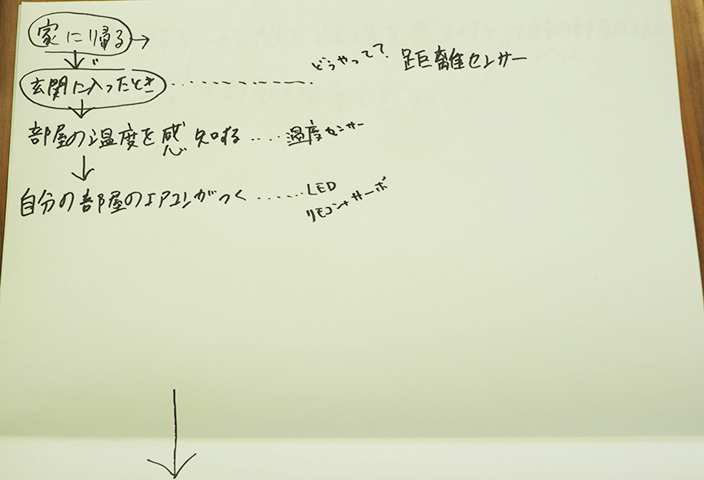 家に帰る→
玄関に入ったとき ………… どうやって? 距離センサー
部屋の温度を感知する …… 温度センサー
自分の部屋のエアコンがつく …… LED
リモコン+サーボ